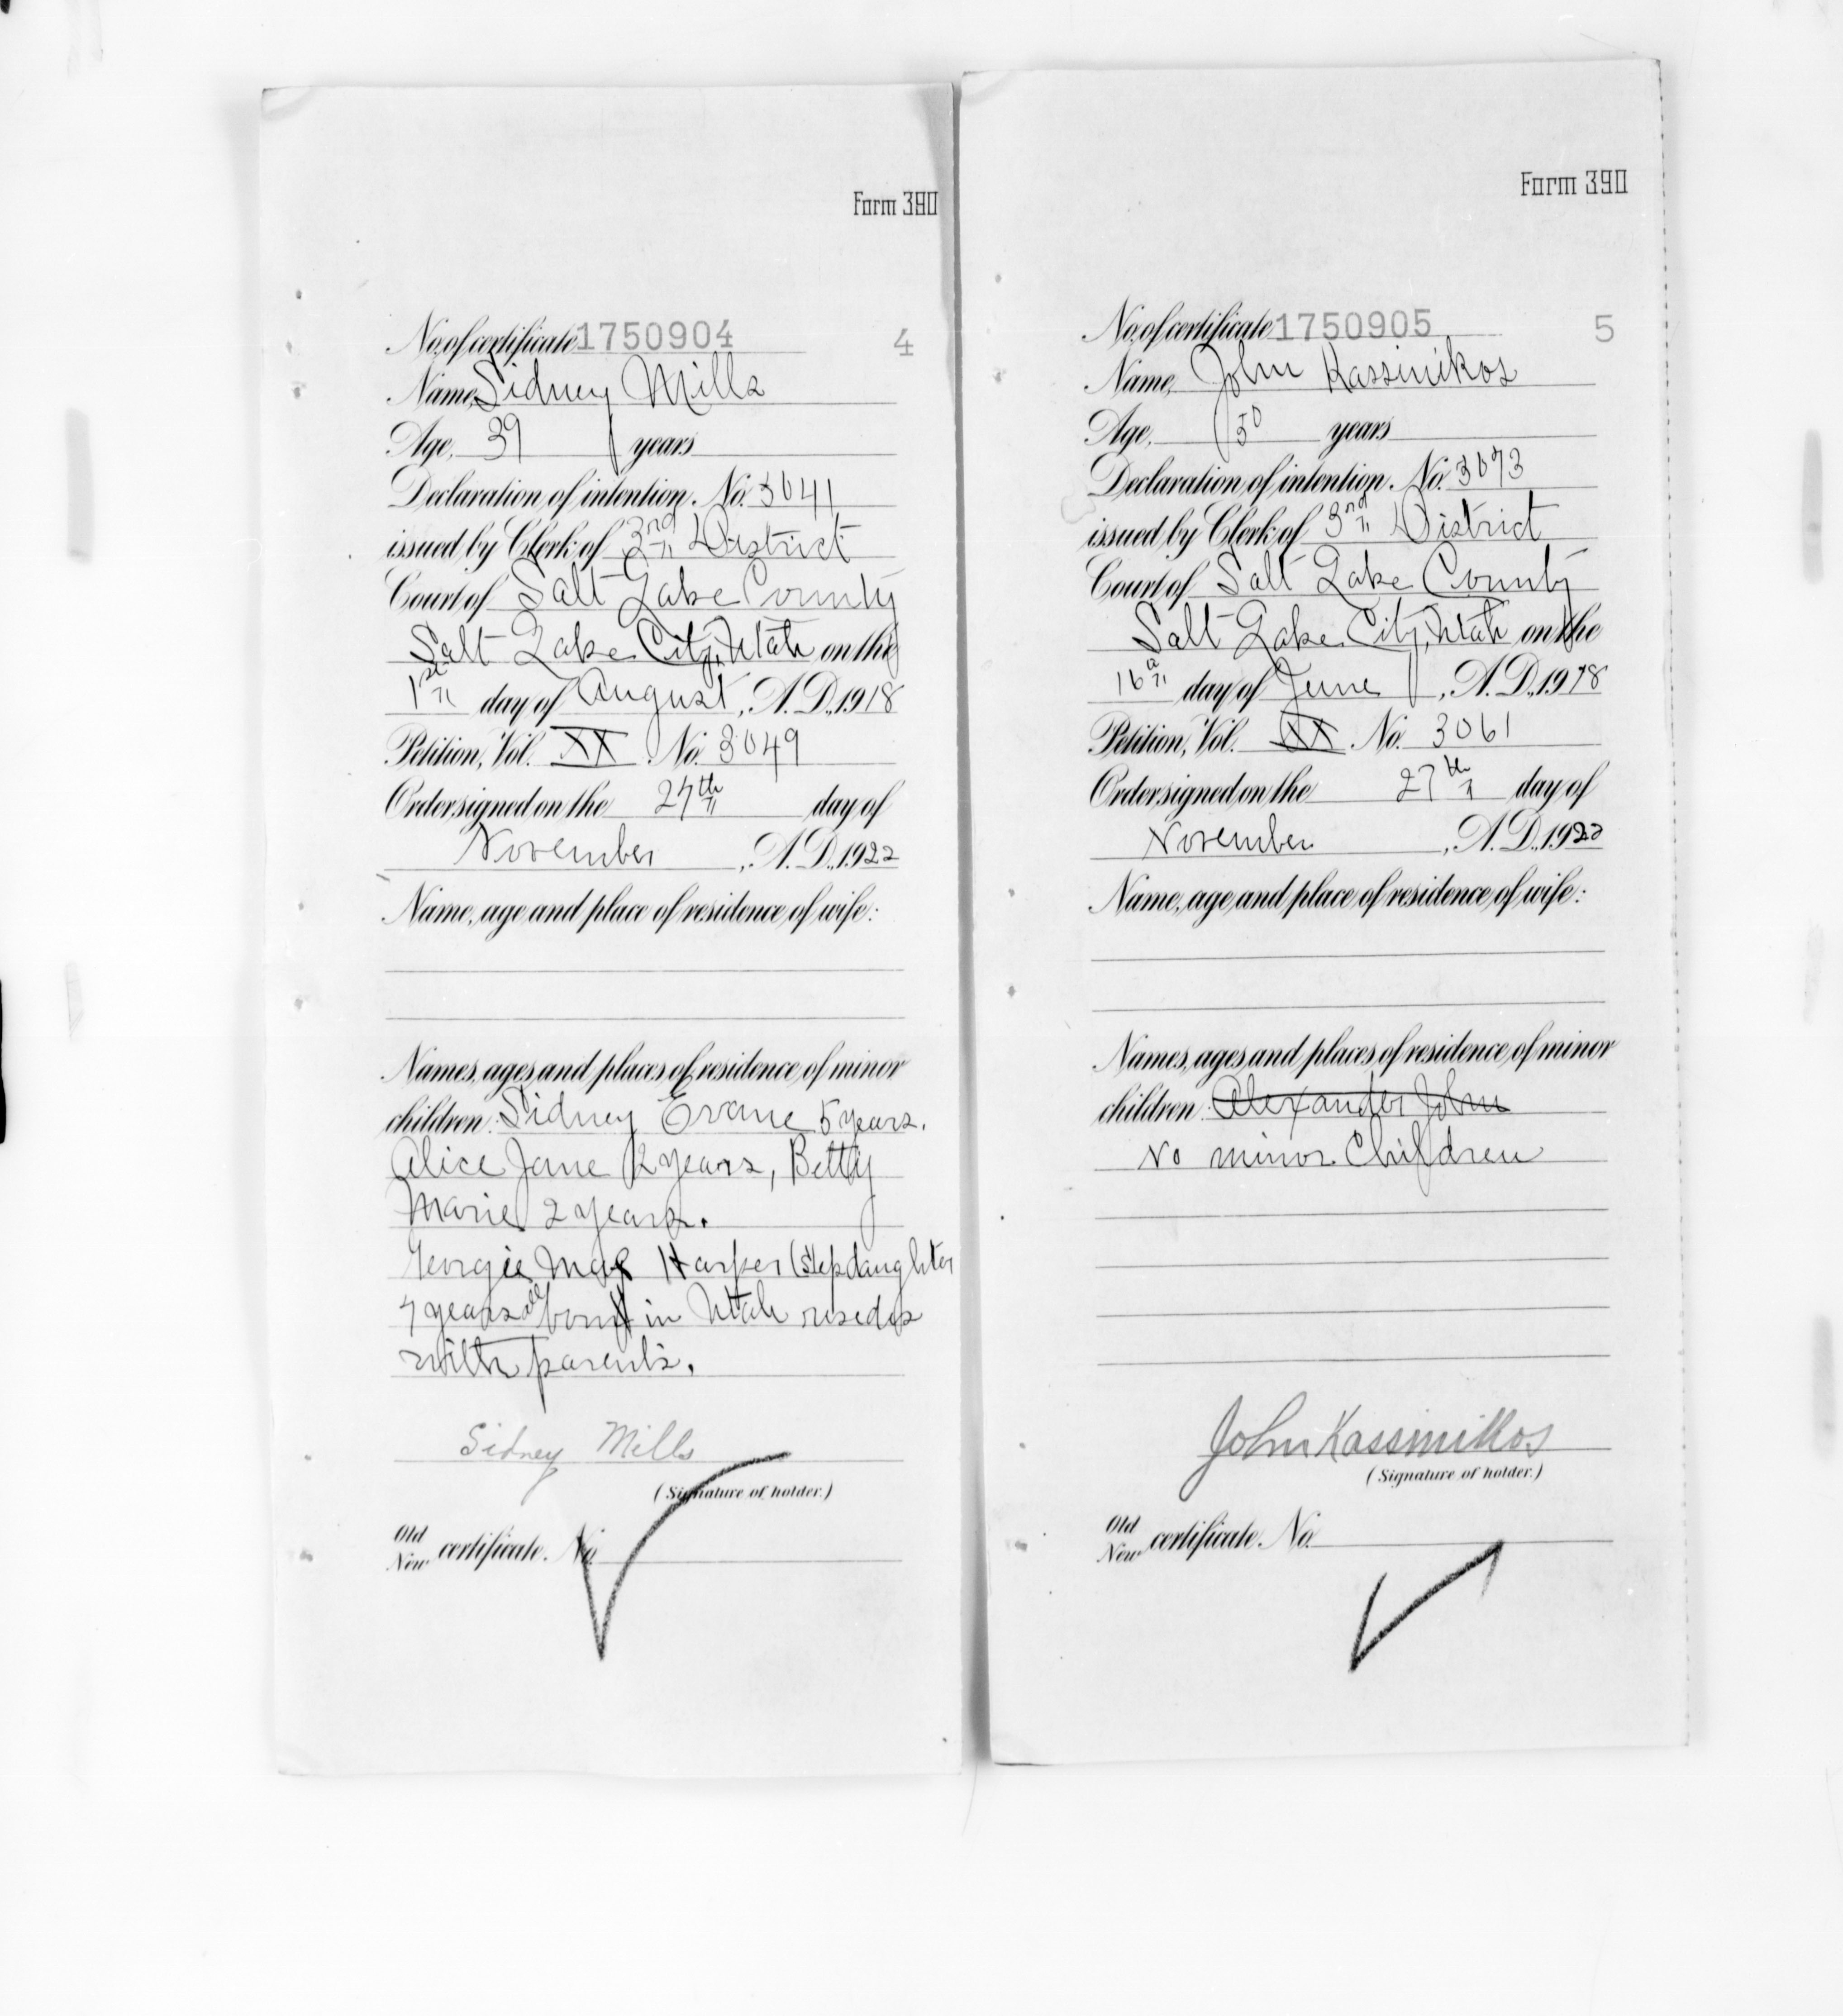 Form 390
No. of certificate 1750904 4
Name, Sidney Mills
Age, 39 years
Declaration of intention, No. 3641
issued by Clerk of 3rd District
Court of Salt Lake County
Salt Lake City, Utah on the
1st day of August, A.D., 1918
Petition, Vol. XX No. 3049
Order signed on the 27th day of
November, A.D., 1922
Name, age and place of residence of wife:
Names, ages and places of residence of minor
children: Sidney 5 years.
Alice Jane 2 years, Betty
Marie 2 years.
Georgie Mae Harper (Stepdaughter
7 years all born in Utah resides
with parents.
Sidney Mills
(Signature of holder.)
Old
New certificate. No.
Form 390
No. of certificate 1750905 5
Name, John Kassinikos
Age, 50 years
Declaration of intention, No. 3673
issued by Clerk of 3rd District
Court of Salt Lake County
Salt Lake City, Utah on the
16 day of June, A.D., 1918
Petition, Vol. XX No. 3061
Order signed on the 27th day of
November, A.D., 1922
Name, age and place of residence of wife:
Names, ages and places of residence of minor
children: Alexander John
No minor Children
John Kassinikos
(Signature of holder.)
Old
New certificate. No.